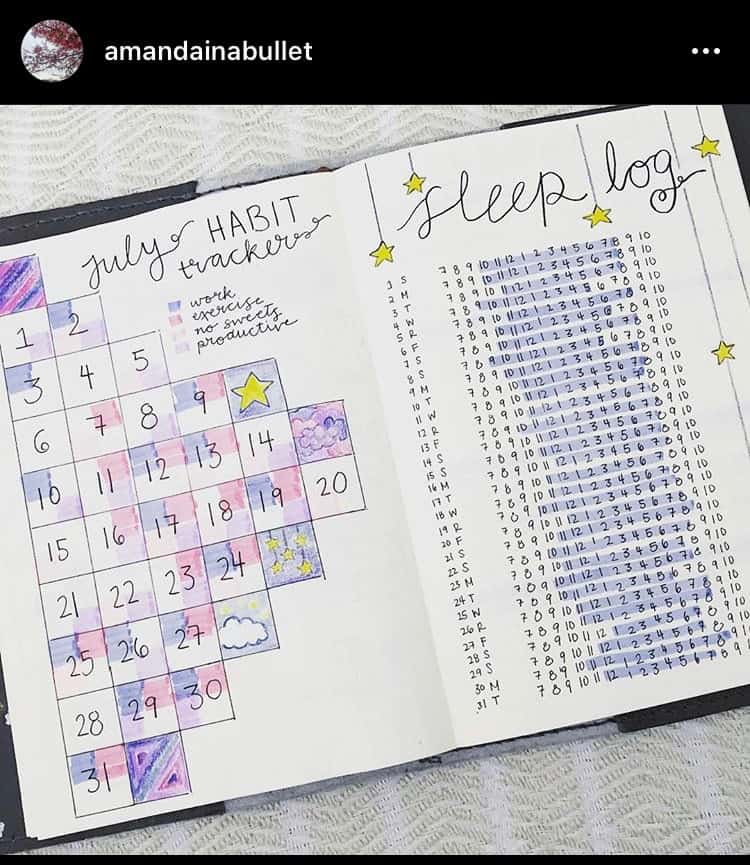 amandainabullet
july HABIT
tracker
work
exercise
no sweets
productive
1 2
3 4 5
6 7 8 9
10 11 12 13 14
15 16 17 18 19 20
21 22 23 24
25 26 27
28 29 30
31
sleep log
1 S 7 8 9 10 11 12 1 2 3 4 5 6 7 8 9 10
2 M 7 8 9 10 11 12 1 2 3 4 5 6 7 8 9 10
3 T 7 8 9 10 11 12 1 2 3 4 5 6 7 8 9 10
4 W 7 8 9 10 11 12 1 2 3 4 5 6 7 8 9 10
5 R 7 8 9 10 11 12 1 2 3 4 5 6 7 8 9 10
6 F 7 8 9 10 11 12 1 2 3 4 5 6 7 8 9 10
7 S 7 8 9 10 11 12 1 2 3 4 5 6 7 8 9 10
8 S 7 8 9 10 11 12 1 2 3 4 5 6 7 8 9 10
9 M 7 8 9 10 11 12 1 2 3 4 5 6 7 8 9 10
10 T 7 8 9 10 11 12 1 2 3 4 5 6 7 8 9 10
11 W 7 8 9 10 11 12 1 2 3 4 5 6 7 8 9 10
12 R 7 8 9 10 11 12 1 2 3 4 5 6 7 8 9 10
13 F 7 8 9 10 11 12 1 2 3 4 5 6 7 8 9 10
14 S 7 8 9 10 11 12 1 2 3 4 5 6 7 8 9 10
15 S 7 8 9 10 11 12 1 2 3 4 5 6 7 8 9 10
16 M 7 8 9 10 11 12 1 2 3 4 5 6 7 8 9 10
17 T 7 8 9 10 11 12 1 2 3 4 5 6 7 8 9 10
18 W 7 8 9 10 11 12 1 2 3 4 5 6 7 8 9 10
19 R 7 8 9 10 11 12 1 2 3 4 5 6 7 8 9 10
20 F 7 8 9 10 11 12 1 2 3 4 5 6 7 8 9 10
21 S 7 8 9 10 11 12 1 2 3 4 5 6 7 8 9 10
22 S 7 8 9 10 11 12 1 2 3 4 5 6 7 8 9 10
23 M 7 8 9 10 11 12 1 2 3 4 5 6 7 8 9 10
24 T 7 8 9 10 11 12 1 2 3 4 5 6 7 8 9 10
25 W 7 8 9 10 11 12 1 2 3 4 5 6 7 8 9 10
26 R 7 8 9 10 11 12 1 2 3 4 5 6 7 8 9 10
27 F 7 8 9 10 11 12 1 2 3 4 5 6 7 8 9 10
28 S 7 8 9 10 11 12 1 2 3 4 5 6 7 8 9 10
29 S 7 8 9 10 11 12 1 2 3 4 5 6 7 8 9 10
30 M 7 8 9 10 11 12 1 2 3 4 5 6 7 8 9 10
31 T 7 8 9 10 11 12 1 2 3 4 5 6 7 8 9 10